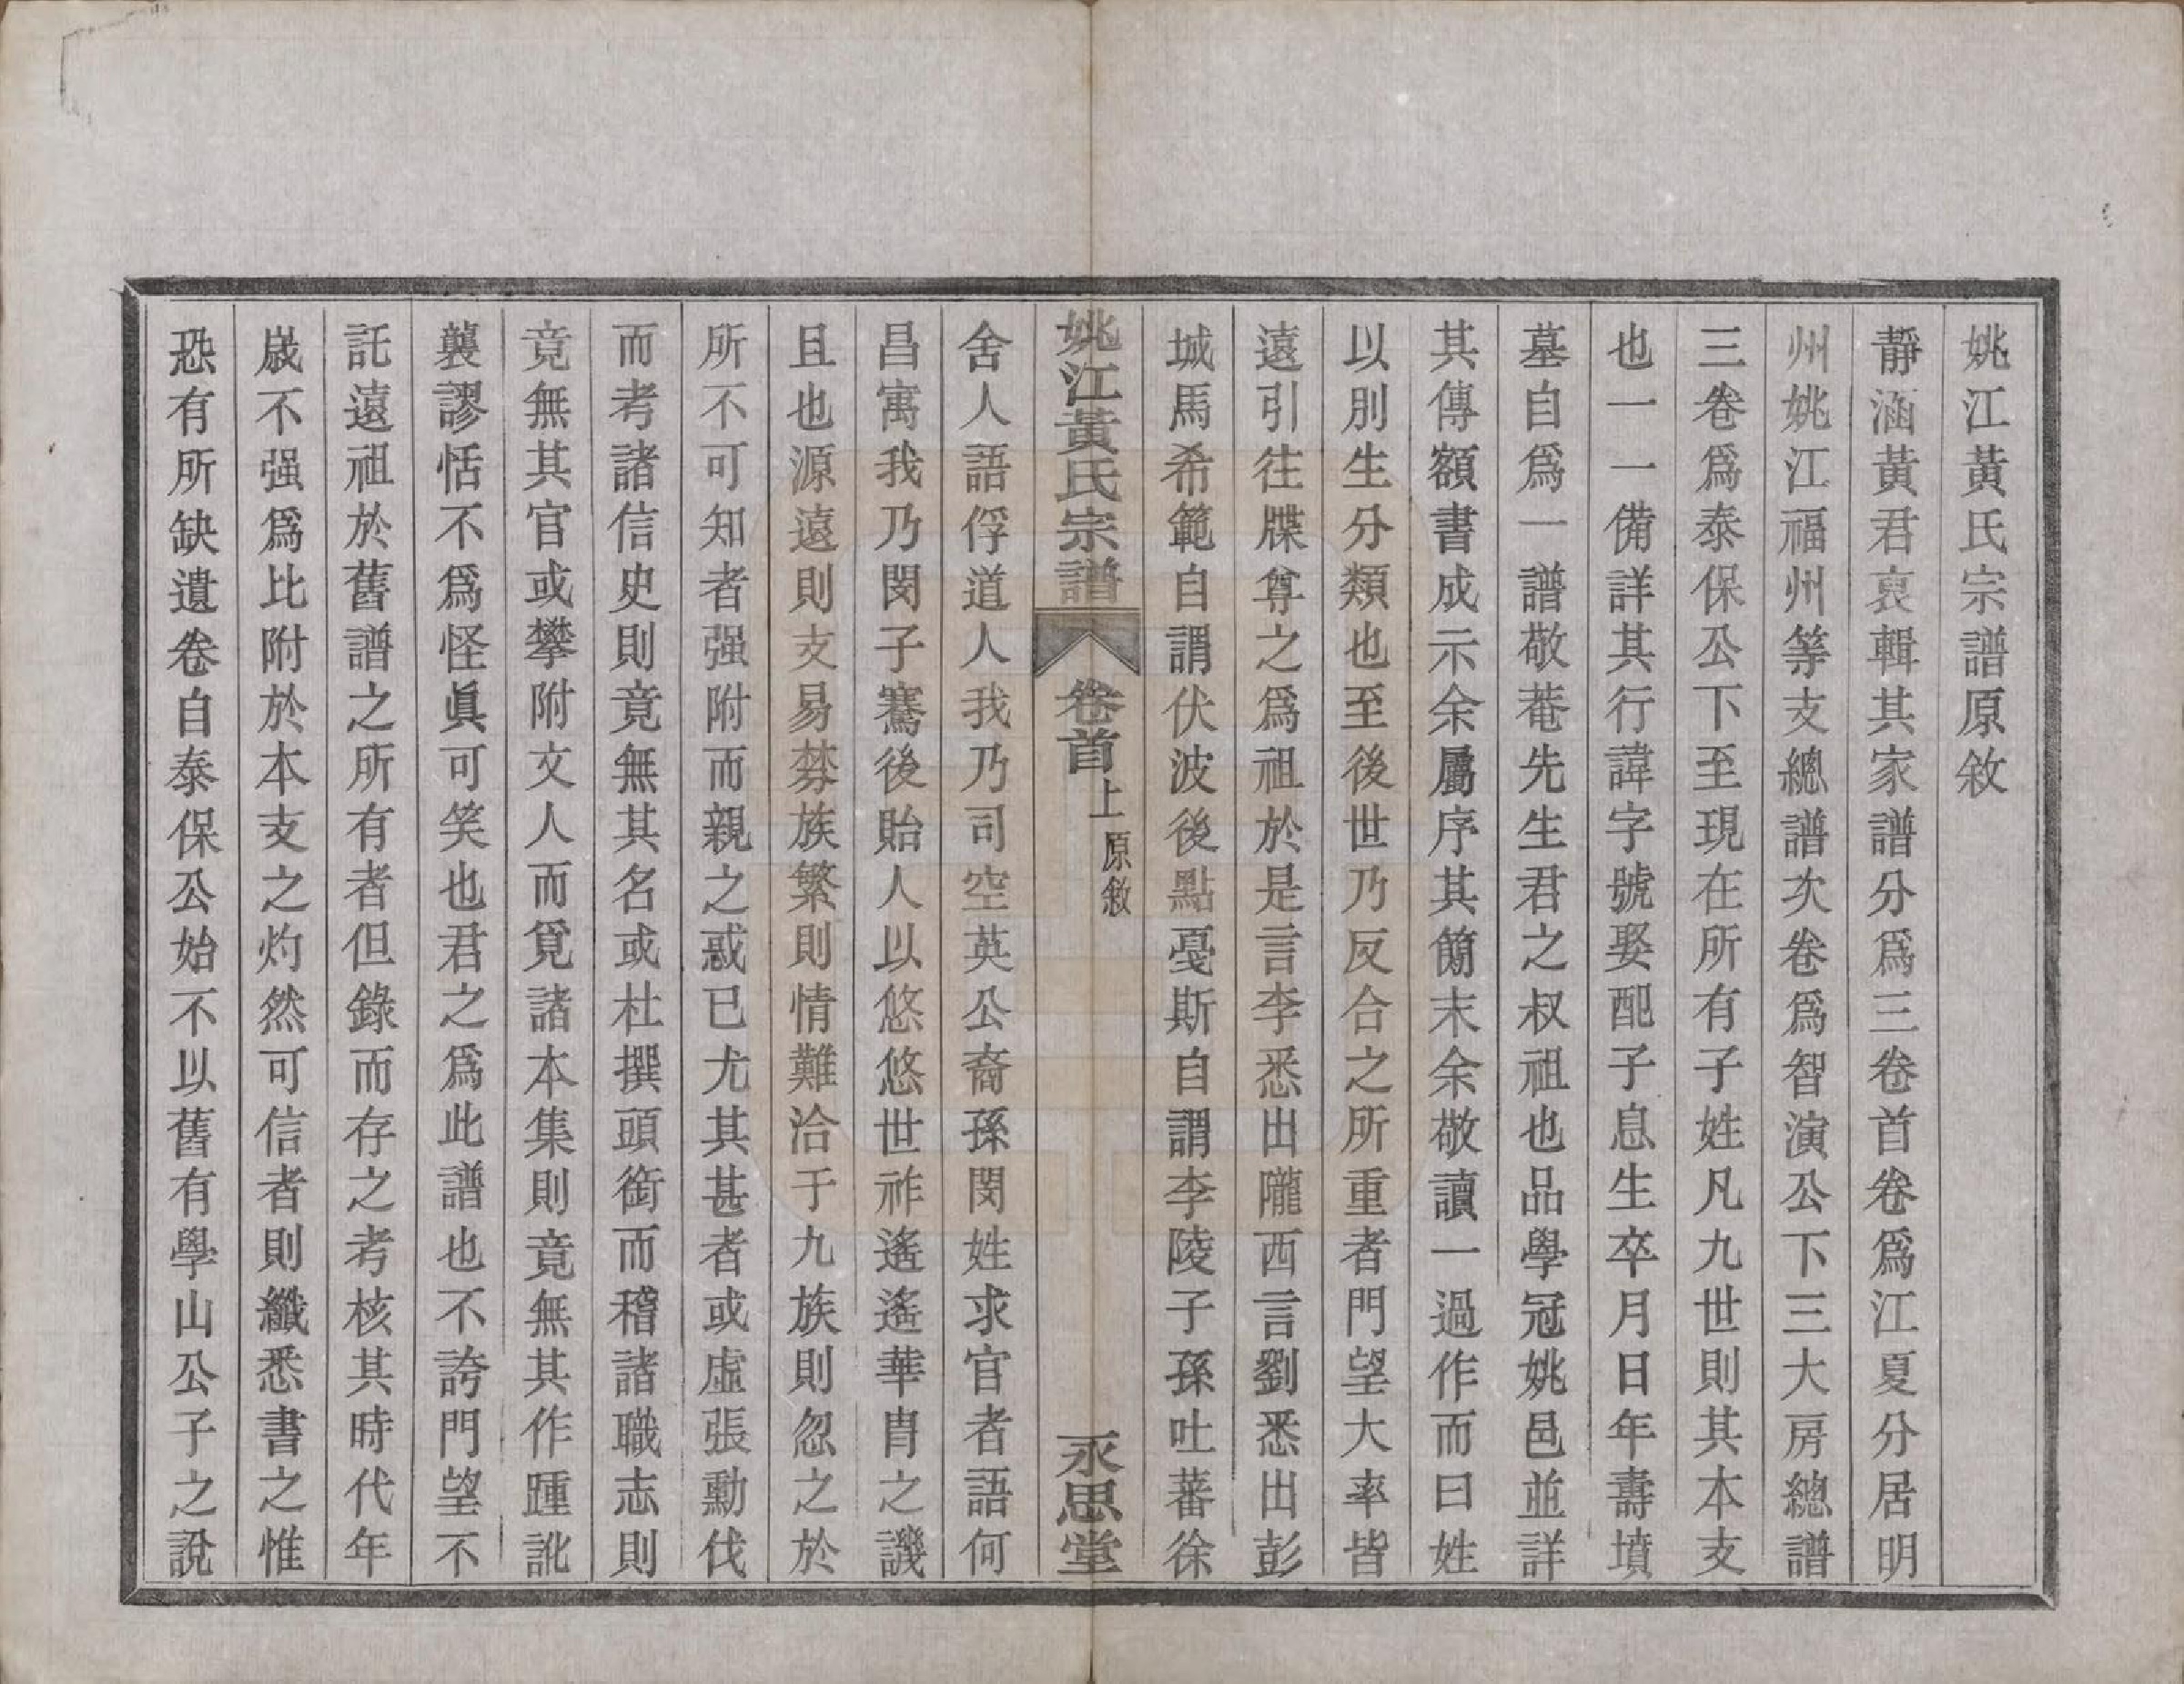 姚江黃氏宗譜原敘
靜涵黃君裒輯其家譜分爲三卷首卷爲江夏分居明
州姚江福州等支總譜次卷爲智演公下三大房總譜
三卷爲泰保公下至現在所有子姓凡九世則其本支
也一一備詳其行諱字號娶配子息生卒月日年壽墳
墓自爲一譜敬菴先生君之叔祖也品學冠姚邑並詳
其傳額書成示余屬序其簡末余敬讀一過作而曰姓
以別生分類也至後世乃反合之所重者門望大率皆
遠引往牒尊之爲祖於是言李悉出隴西言劉悉出彭
城馬希範自謂伏波後點戞斯自謂李陵子孫吐蕃徐
姚江黃氏宗譜 卷首上 原敘 永思堂
舍人語俘道人我乃司空英公裔孫閔姓求官者語何
昌寓我乃閔子騫後貽人以悠悠世祚遙遙華胄之譏
且也源遠則支易棼族繁則情難洽于九族則忽之於
所不可知者强附而親之惑已尤其甚者或虛張勳伐
而考諸信史則竟無其名或杜撰頭銜而稽諸職志則
竟無其官或攀附文人而覓諸本集則竟無其作踵訛
襲謬恬不爲怪眞可笑也君之爲此譜也不誇門望不
託遠祖於舊譜之所有者但錄而存之考核其時代年
歲不强爲比附於本支之灼然可信者則纖悉書之惟
恐有所缺遺卷自泰保公始不以舊有學山公子之說